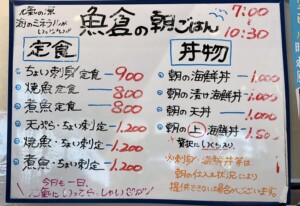 魚倉の朝ごはん
7:00
10:30
定食
・ちょい刺身定食 - 900
・焼魚定食 - 800
・煮魚定食 - 800
・天ぷら・ちょい刺定 - 1.200
・焼魚・ちょい刺定 - 1.200
・煮魚・ちょい刺定 - 1.200
今日も一日、
元気にいってらっしゃい
丼物
・朝の海鮮丼 - 1.000
・朝の漬け海鮮丼 - 1.000
・朝の天丼 - 1.000
・朝の上海鮮丼 - 1.50
贅沢にいくら
※刺身・海鮮丼等は
朝の仕入れ状況により
提供できない場合がございます。